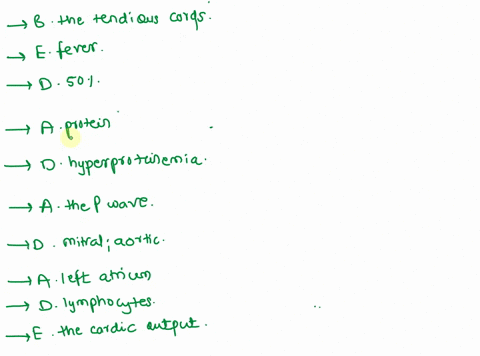 → B. the tendious cords.
→ E. fever.
→ D. 50%.
→ A. protein
→ D. hyperproteinemia.
→ A. the P wave.
→ D. mitral; aortic.
→ A. left atrium
→ D. lymphocytes.
→ E. the cardic output.